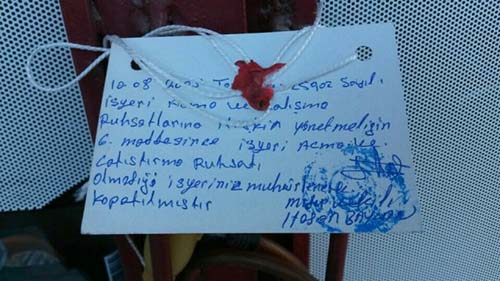 10.08 Sayılı
işyeri Açma ve Çalışma
Ruhsatlarına ilişkin yönetmeliğin
6. maddesince işyeri Açma ve
Çalıştırma Ruhsatı
Olmadığı işyeriniz mühürlenerek
kapatılmıştır